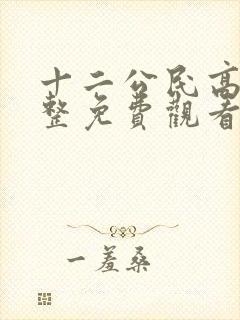 十二公民高
整免費觀看
一羞桑